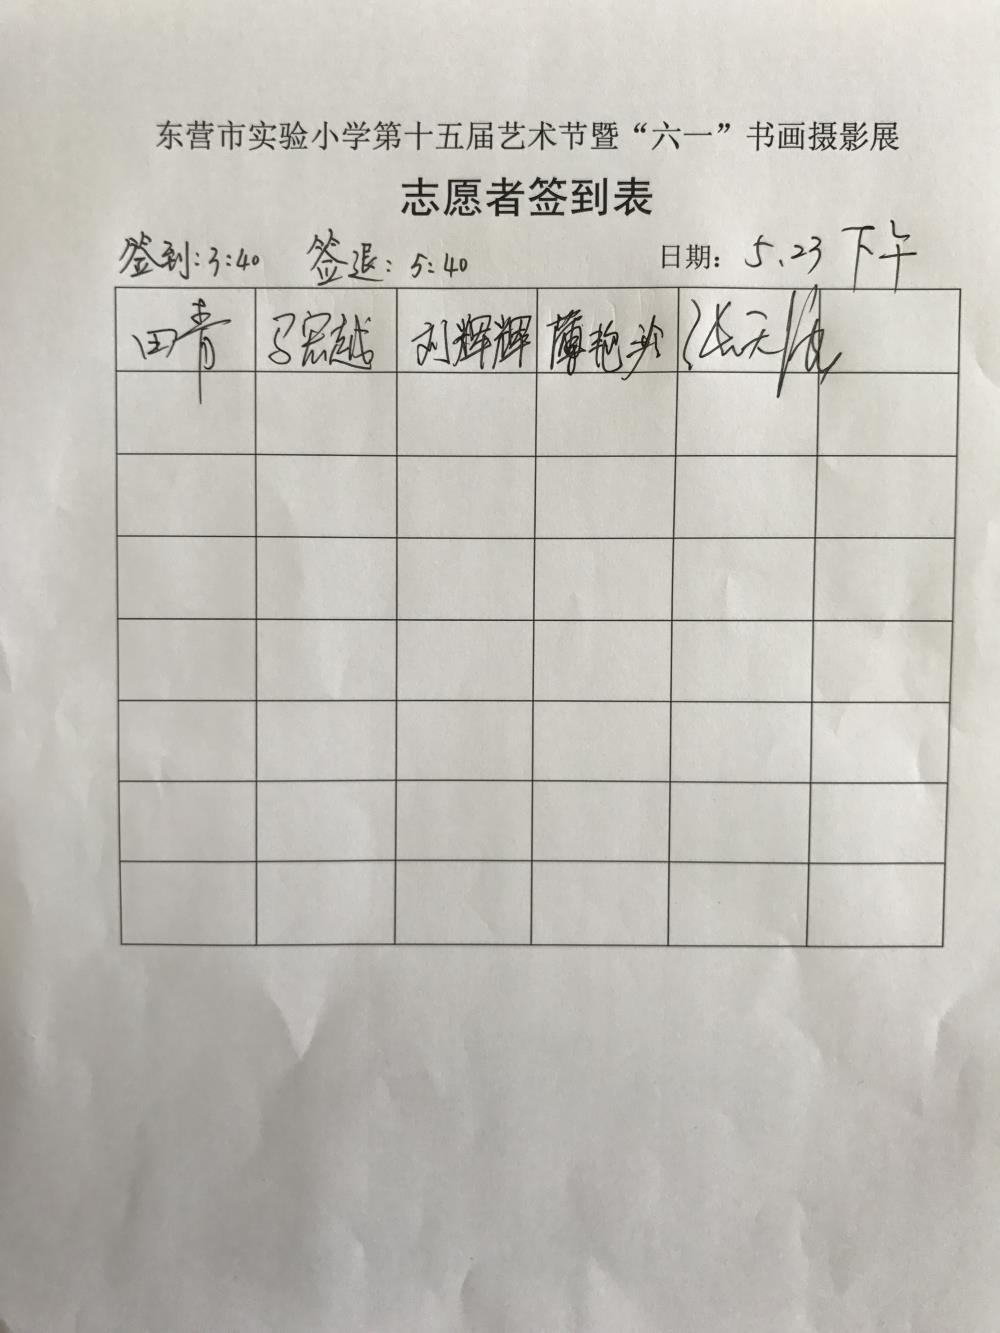 东营市实验小学第十五届艺术节暨“六一”书画摄影展
志愿者签到表
签到:3:40 签退:5:40 日期：5.23下午
田青 马宏越 刘辉辉 薄艳玲 张天